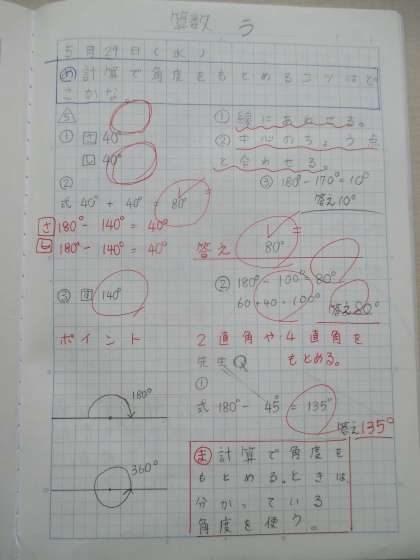 算数
5月29日(水)
め 計算で角度をもとめるコツはど
こかな。
① さ 40°
し 40°
②
式 40° + 40° = 80°
さ 180° - 140° = 40°
し 180° - 140° = 40°
③ す 140°
ポイント
180°
360°
① 線にあわせる。
② 中心のちょう点
と合わせる。
③ 180° - 170° = 10°
答え10°
答え 80°
② 180° - 100° = 80°
60 + 40 = 100°
答え80°
2直角や4直角を
もとめる。
先生Q
①
式 180° - 45° = 135°
答え135°
ま 計算で角度を
もとめる。ときは
分かっている
角度を使う。